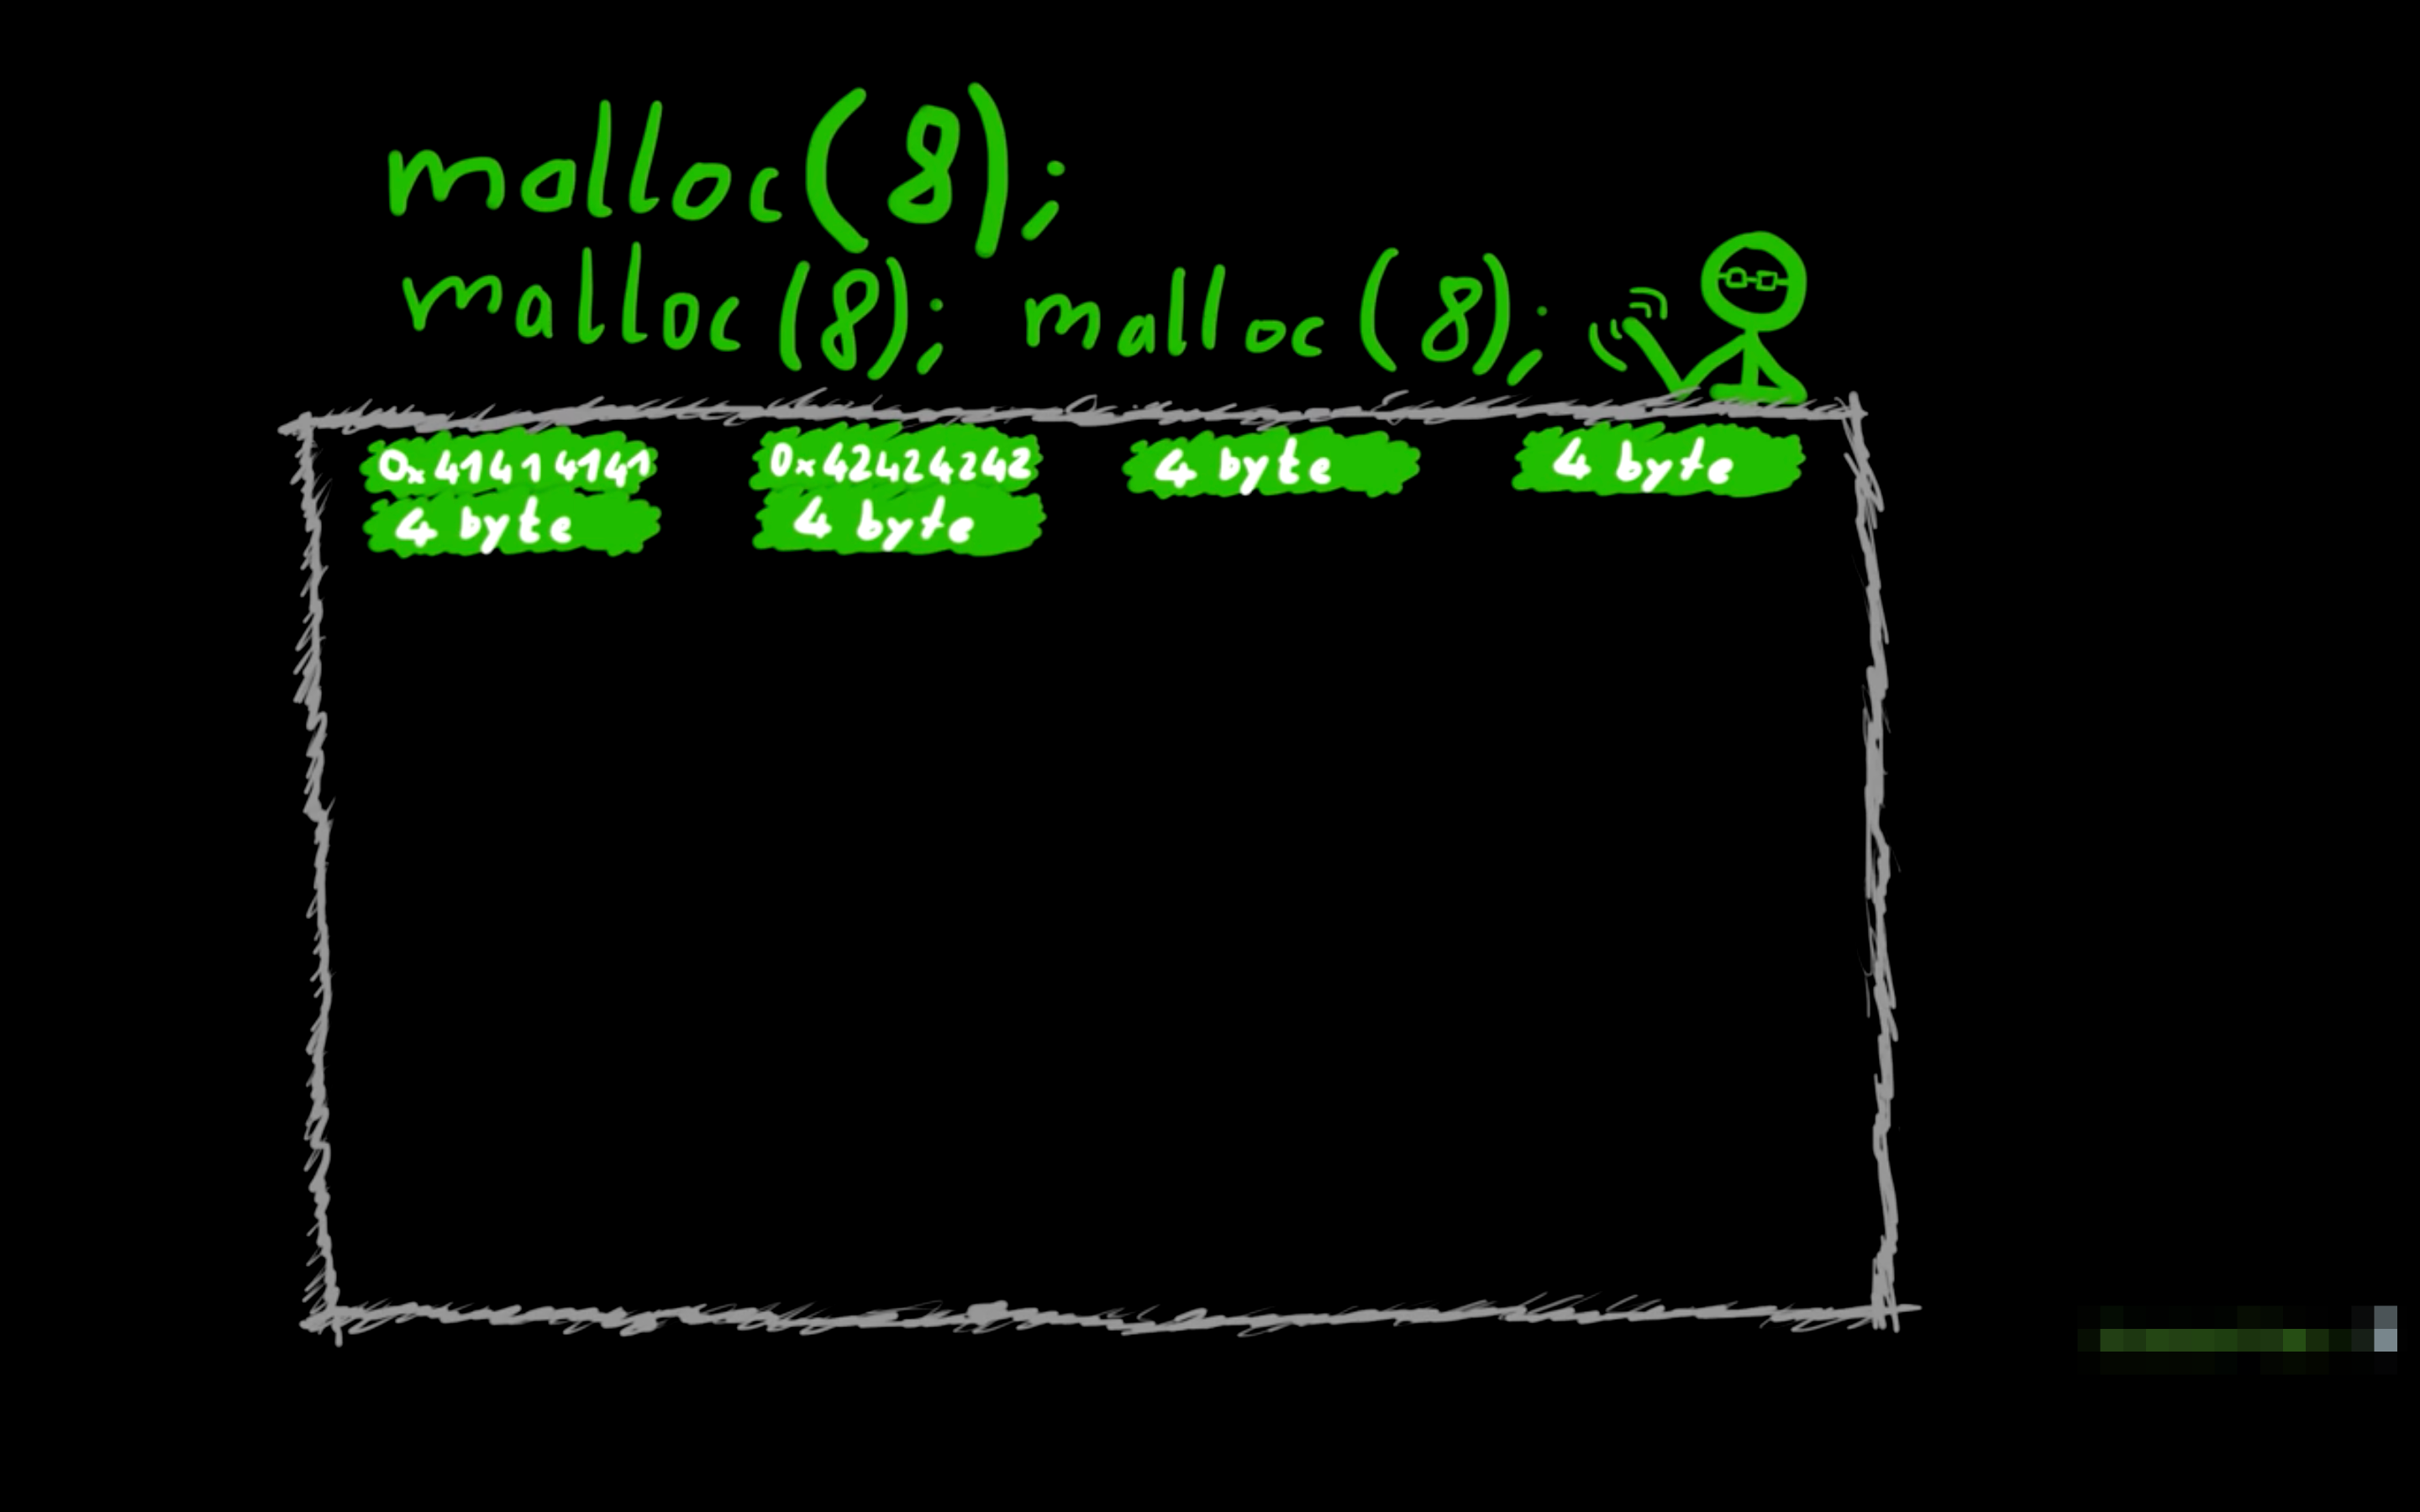 malloc(8);
malloc(8); malloc(8);
0x41414141 0x42424242 4 byte 4 byte
4 byte 4 byte